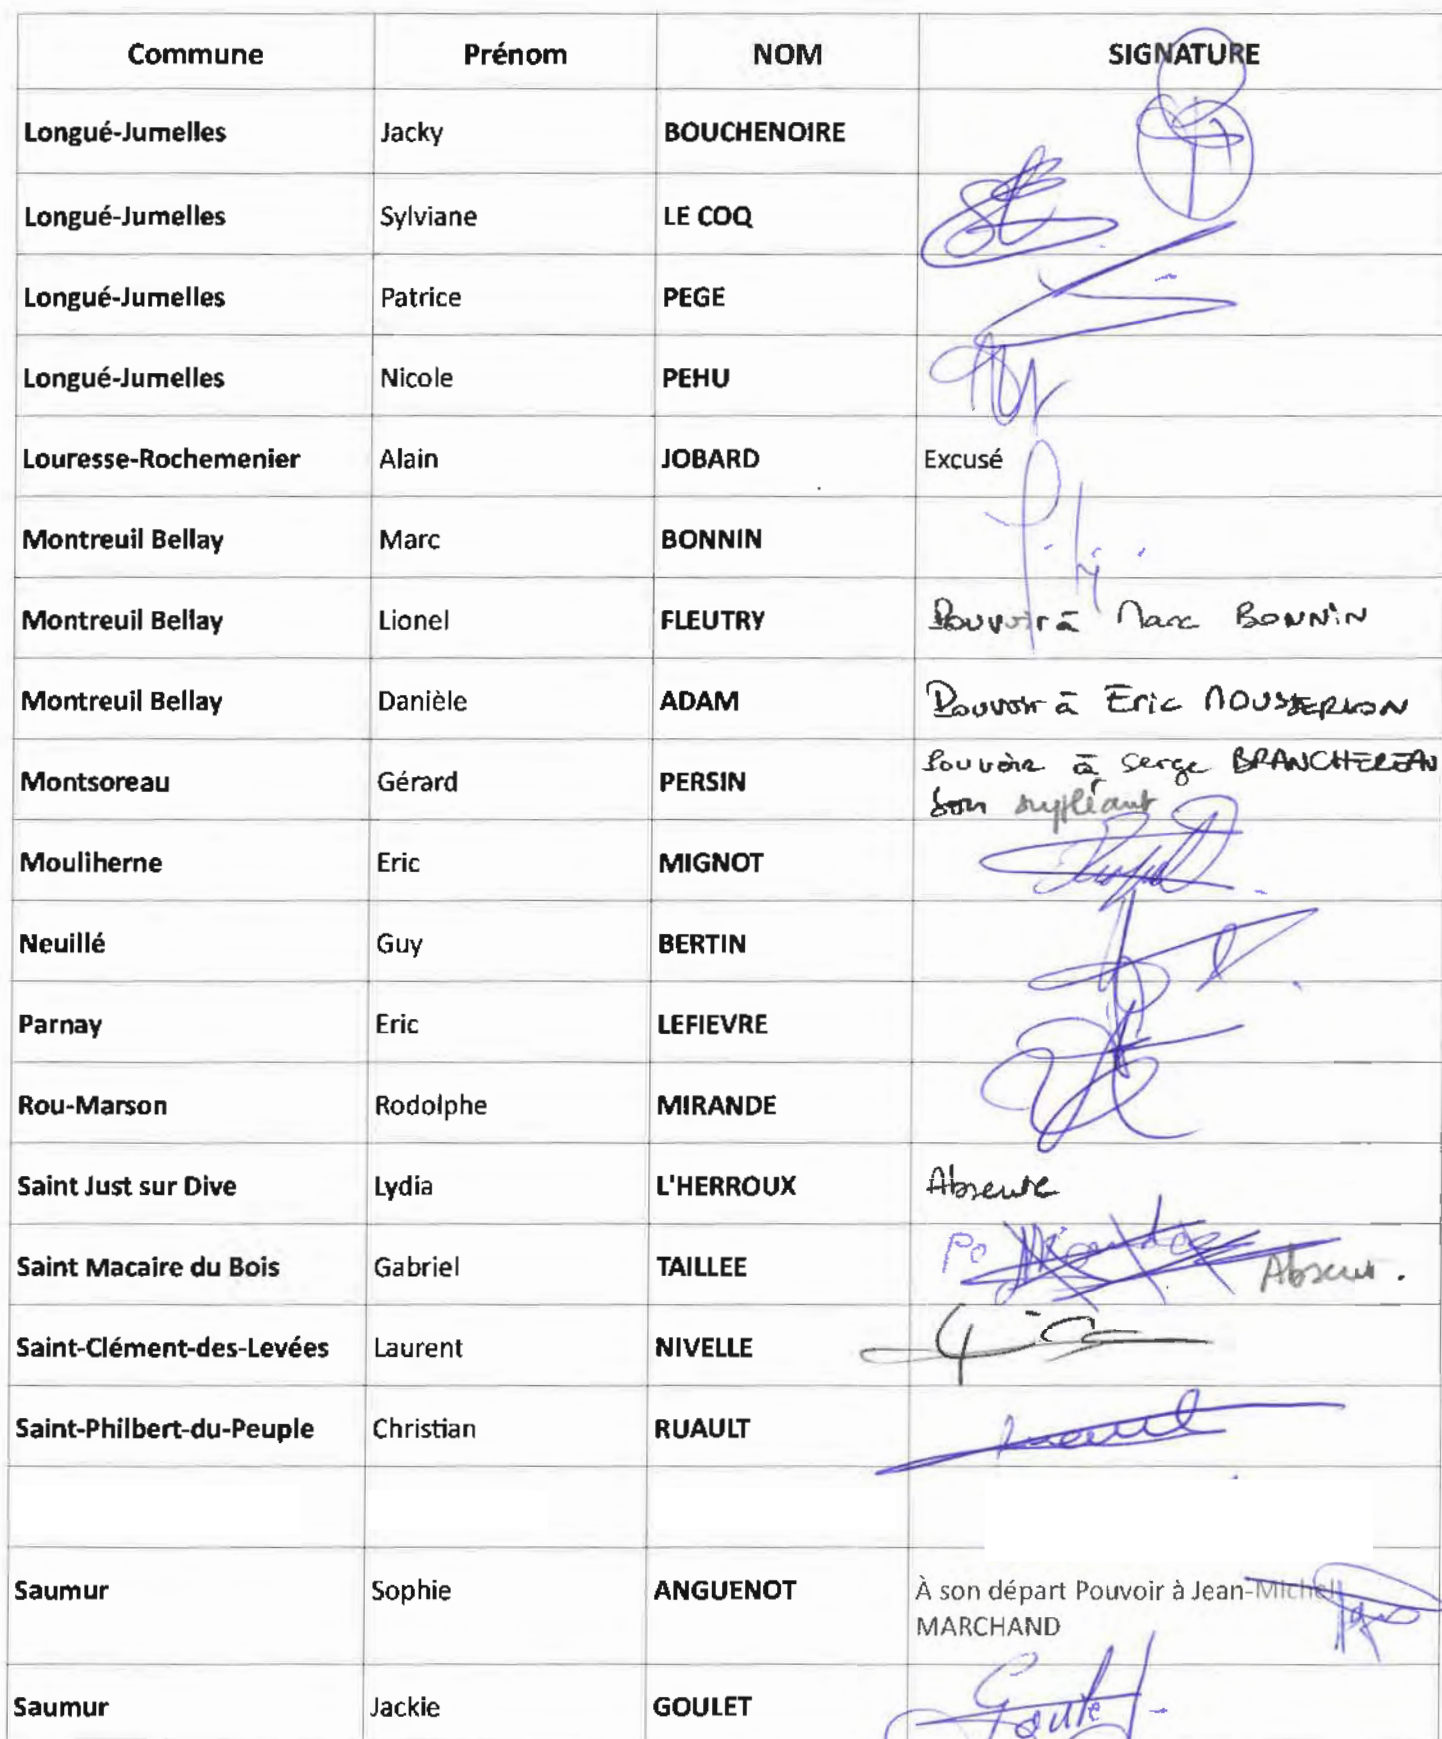 Commune Prénom NOM SIGNATURE
Longué-Jumelles Jacky BOUCHENOIRE
Longué-Jumelles Sylviane LE COQ
Longué-Jumelles Patrice PEGE
Longué-Jumelles Nicole PEHU
Louresse-Rochemenier Alain JOBARD Excusé
Montreuil Bellay Marc BONNIN
Montreuil Bellay Lionel FLEUTRY Pouvoir à Marc BONNIN
Montreuil Bellay Danièle ADAM Pouvoir à Eric MOUSSERION
Montsoreau Gérard PERSIN Pouvoir à Serge BRANCHEREAU
son suppléant
Mouliherne Eric MIGNOT
Neuillé Guy BERTIN
Parnay Eric LEFIEVRE
Rou-Marson Rodolphe MIRANDE
Saint Just sur Dive Lydia L'HERROUX Absente
Saint Macaire du Bois Gabriel TAILLEE Absent.
Saint-Clément-des-Levées Laurent NIVELLE
Saint-Philbert-du-Peuple Christian RUAULT
Saumur Sophie ANGUENOT À son départ Pouvoir à Jean-Michel
MARCHAND
Saumur Jackie GOULET Goulet